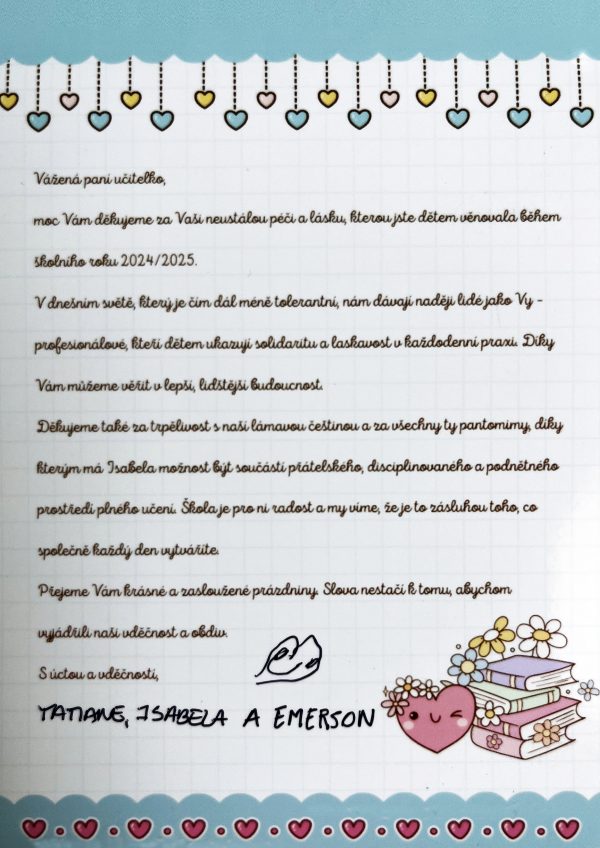 Vážená paní učitelko,
moc Vám děkujeme za Vaši neustálou péči a lásku, kterou jste dětem věnovala během
školního roku 2024/2025.
V dnešním světě, který je čím dál méně tolerantní, nám dávají naději lidé jako Vy –
profesionálové, kteří dětem ukazují solidaritu a laskavost v každodenní praxi. Díky
Vám můžeme věřit v lepší, lidštější budoucnost.
Děkujeme také za trpělivost s naší lámavou češtinou a za všechny ty pantomimy, díky
kterým má Isabela možnost být součástí přátelského, disciplinovaného a podnětného
prostředí plného učení. Škola je pro ni radost a my víme, že je to zásluhou toho, co
společně každý den vytváříte.
Přejeme Vám krásné a zasloužené prázdniny. Slova nestačí k tomu, abychom
vyjádřili naši vděčnost a obdiv.
S úctou a vděčností,
TATIANE, ISABELA A EMERSON